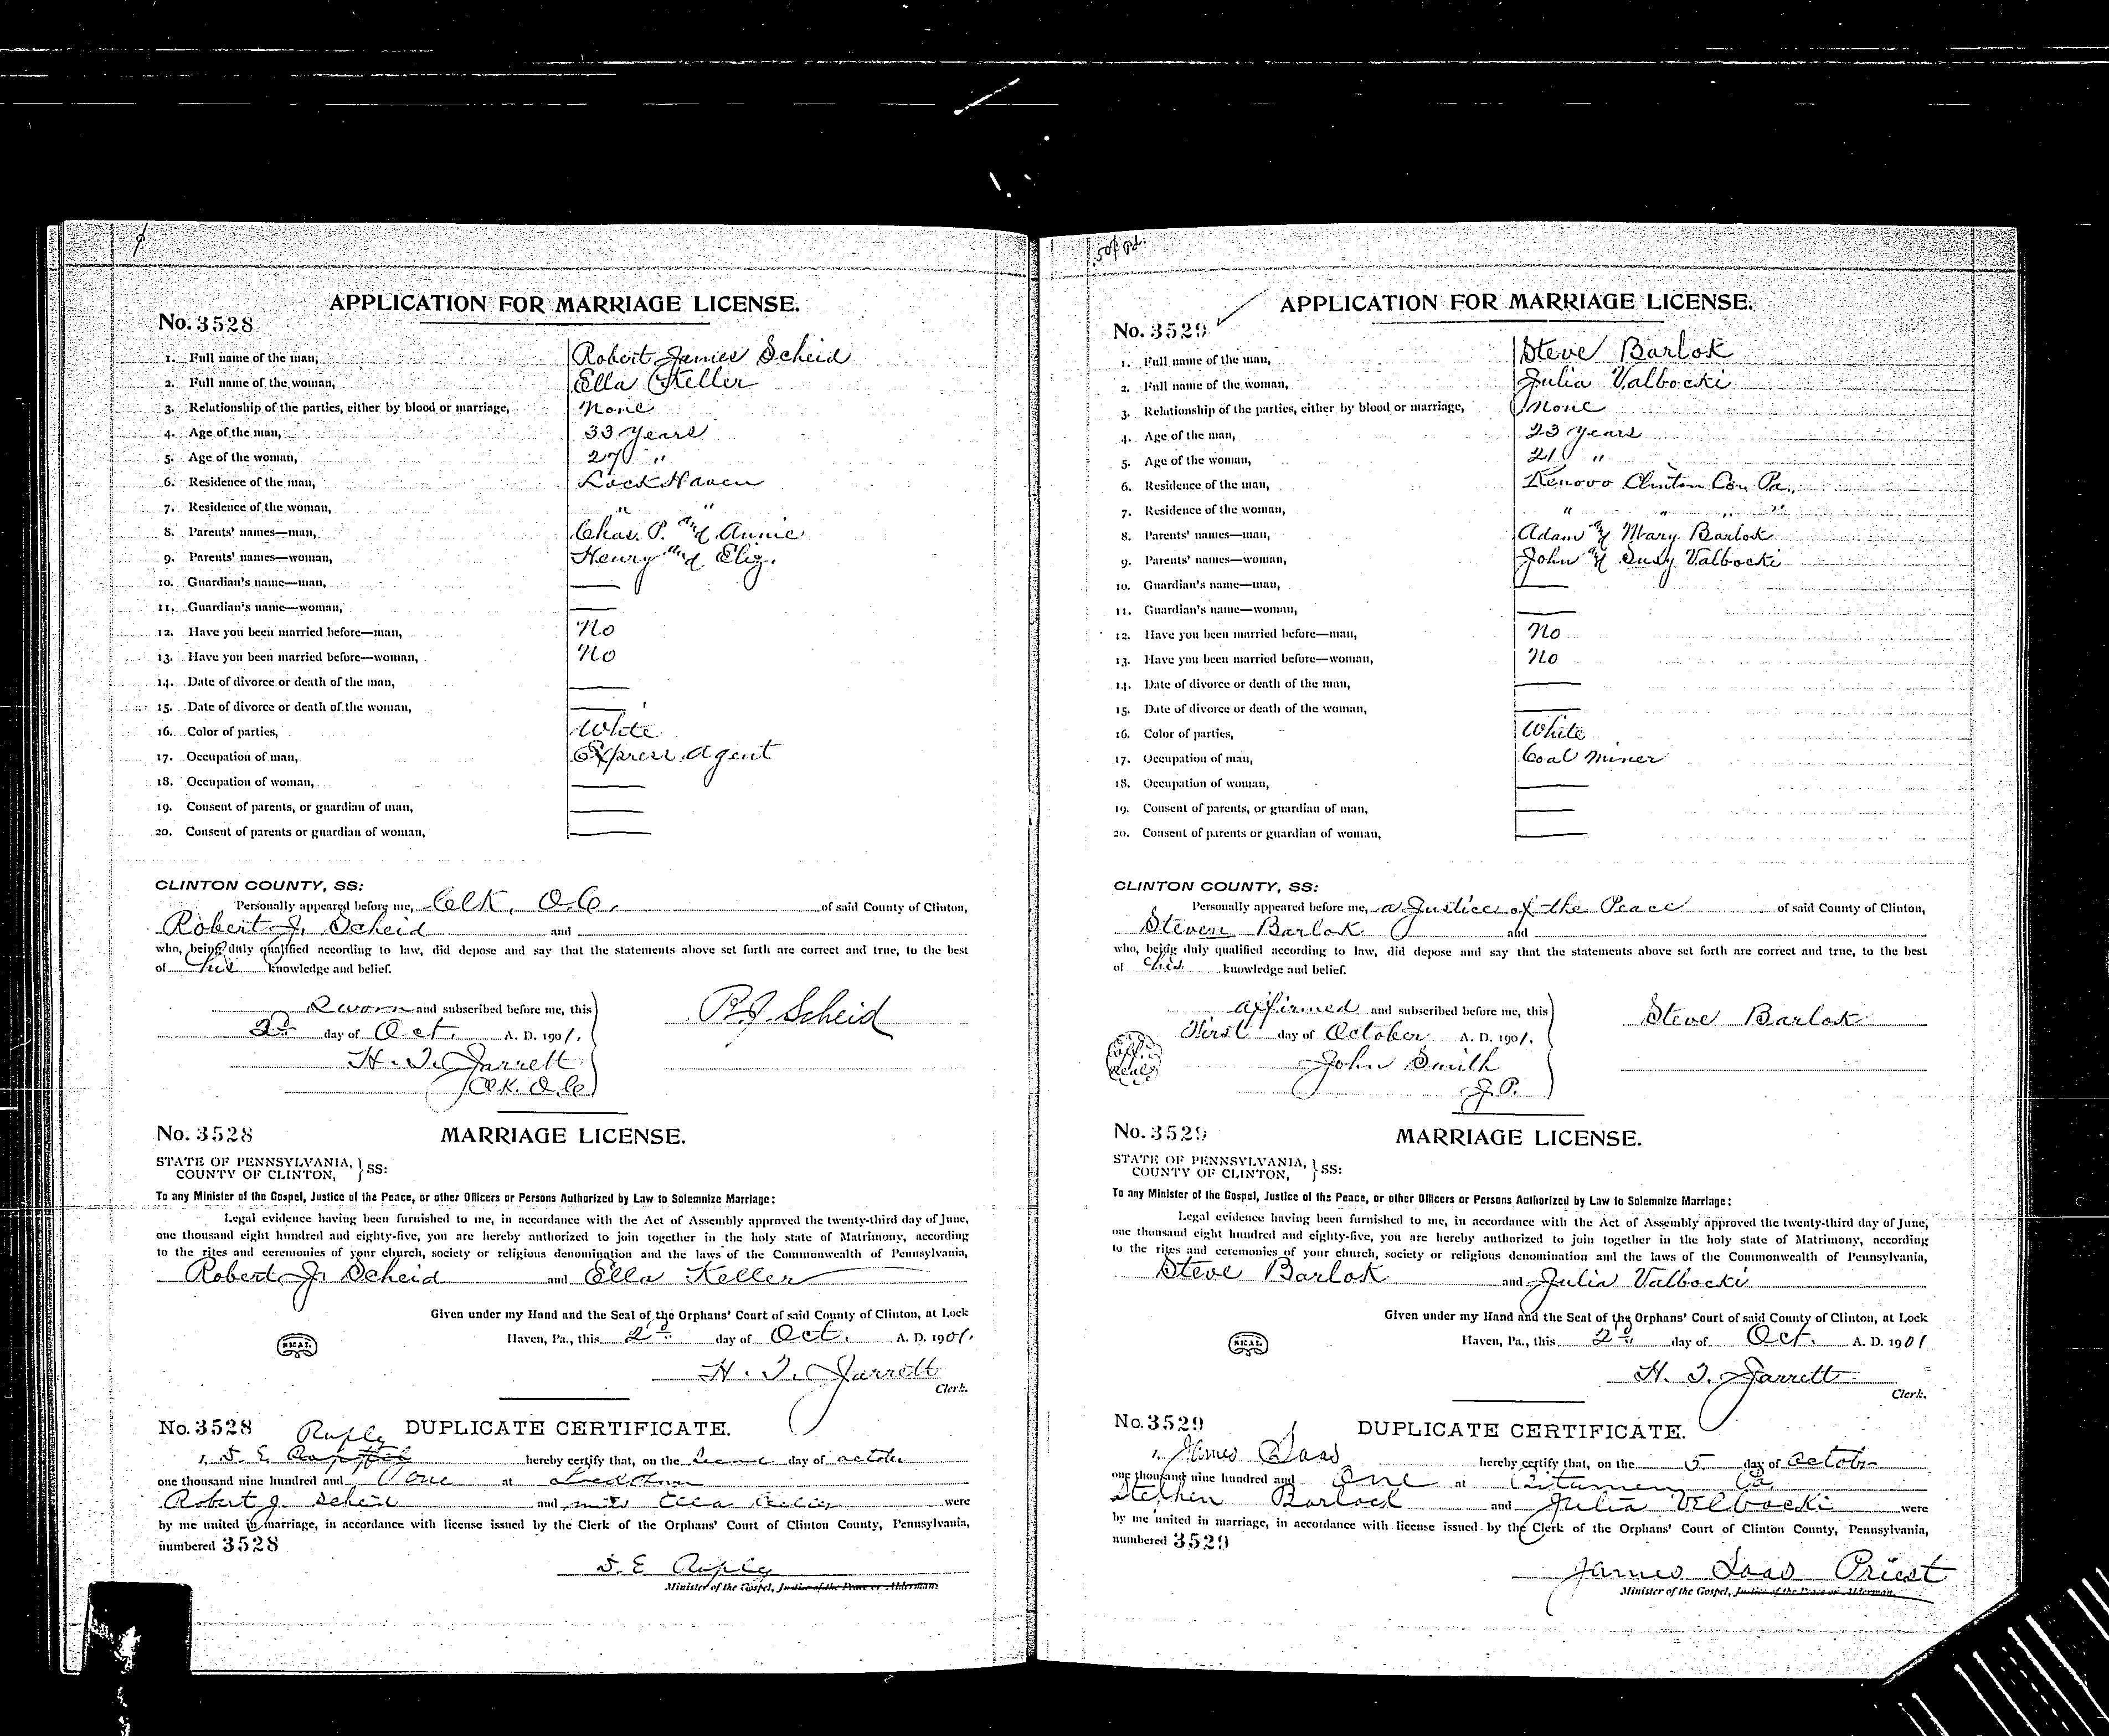 APPLICATION FOR MARRIAGE LICENSE.
No. 3528
1. Full name of the man, Robert James Scheid
2. Full name of the woman, Ella Keller
3. Relationship of the parties, either by blood or marriage, None
4. Age of the man, 33 years
5. Age of the woman, 27 "
6. Residence of the man, Lock Haven
7. Residence of the woman, " "
8. Parents' names—man, Chas. P. and Annie
9. Parents' names—woman, Henry and Eliz.
10. Guardian's name—man, —
11. Guardian's name—woman, —
12. Have you been married before—man, No
13. Have you been married before—woman, No
14. Date of divorce or death of the man, —
15. Date of divorce or death of the woman, —
16. Color of parties, White
17. Occupation of man, Express Agent
18. Occupation of woman, —
19. Consent of parents, or guardian of man, —
20. Consent of parents or guardian of woman, —
CLINTON COUNTY, SS:
Personally appeared before me, Clk. O.C. of said County of Clinton,
Robert J. Scheid and
who, being duly qualified according to law, did depose and say that the statements above set forth are correct and true, to the best
of his knowledge and belief.
Sworn and subscribed before me, this
2d day of Oct. A. D. 1901.
R. J. Scheid
H. T. Jarrett
Clk. O. C.
No. 3528 MARRIAGE LICENSE.
STATE OF PENNSYLVANIA,
COUNTY OF CLINTON, } SS:
To any Minister of the Gospel, Justice of the Peace, or other Officers or Persons Authorized by Law to Solemnize Marriage:
Legal evidence having been furnished to me, in accordance with the Act of Assembly approved the twenty-third day of June,
one thousand eight hundred and eighty-five, you are hereby authorized to join together in the holy state of Matrimony, according
to the rites and ceremonies of your church, society or religious denomination and the laws of the Commonwealth of Pennsylvania,
Robert J. Scheid and Ella Keller
Given under my Hand and the Seal of the Orphans' Court of said County of Clinton, at Lock
Haven, Pa., this 2d day of Oct. A. D. 1901.
SEAL
H. T. Jarrett
Clerk.
No. 3528 DUPLICATE CERTIFICATE.
Ruply
I, hereby certify that, on the day of October
one thousand nine hundred and one at
Robert J. Scheid and miss Ella were
by me united in marriage, in accordance with license issued by the Clerk of the Orphans' Court of Clinton County, Pennsylvania,
numbered 3528
E Ruply
Minister of the Gospel, Justice of the Peace or Alderman.
50¢ Pd.
APPLICATION FOR MARRIAGE LICENSE.
No. 3529
1. Full name of the man, Steve Barlok
2. Full name of the woman, Julia Valbocki
3. Relationship of the parties, either by blood or marriage, None
4. Age of the man, 23 years
5. Age of the woman, 21 "
6. Residence of the man, Renovo Clinton Con Pa.,
7. Residence of the woman, " " " "
8. Parents' names—man, Adam and Mary Barlok
9. Parents' names—woman, John and Susy Valbocki
10. Guardian's name—man, —
11. Guardian's name—woman, —
12. Have you been married before—man, No
13. Have you been married before—woman, No
14. Date of divorce or death of the man, —
15. Date of divorce or death of the woman, —
16. Color of parties, White
17. Occupation of man, Coal Miner
18. Occupation of woman, —
19. Consent of parents, or guardian of man, —
20. Consent of parents or guardian of woman, —
CLINTON COUNTY, SS:
Personally appeared before me, a Justice of the Peace of said County of Clinton,
Steven Barlok and
who, being duly qualified according to law, did depose and say that the statements above set forth are correct and true, to the best
of his knowledge and belief.
affirmed and subscribed before me, this
First day of October A. D. 1901.
Steve Barlok
John Smith
J. P.
No. 3529 MARRIAGE LICENSE.
STATE OF PENNSYLVANIA,
COUNTY OF CLINTON, } SS:
To any Minister of the Gospel, Justice of the Peace, or other Officers or Persons Authorized by Law to Solemnize Marriage:
Legal evidence having been furnished to me, in accordance with the Act of Assembly approved the twenty-third day of June,
one thousand eight hundred and eighty-five, you are hereby authorized to join together in the holy state of Matrimony, according
to the rites and ceremonies of your church, society or religious denomination and the laws of the Commonwealth of Pennsylvania,
Steve Barlok and Julia Valbocki
Given under my Hand and the Seal of the Orphans' Court of said County of Clinton, at Lock
Haven, Pa., this 2d day of Oct. A. D. 1901
SEAL
H. T. Jarrett
Clerk.
No. 3529 DUPLICATE CERTIFICATE.
I, James Saas hereby certify that, on the 5 day of October
one thousand nine hundred and One at Bitumen Pa
Stephen Barlock and Julia Velbocki were
by me united in marriage, in accordance with license issued by the Clerk of the Orphans' Court of Clinton County, Pennsylvania,
numbered 3529
James Saas Priest
Minister of the Gospel, Justice of the Peace or Alderman.